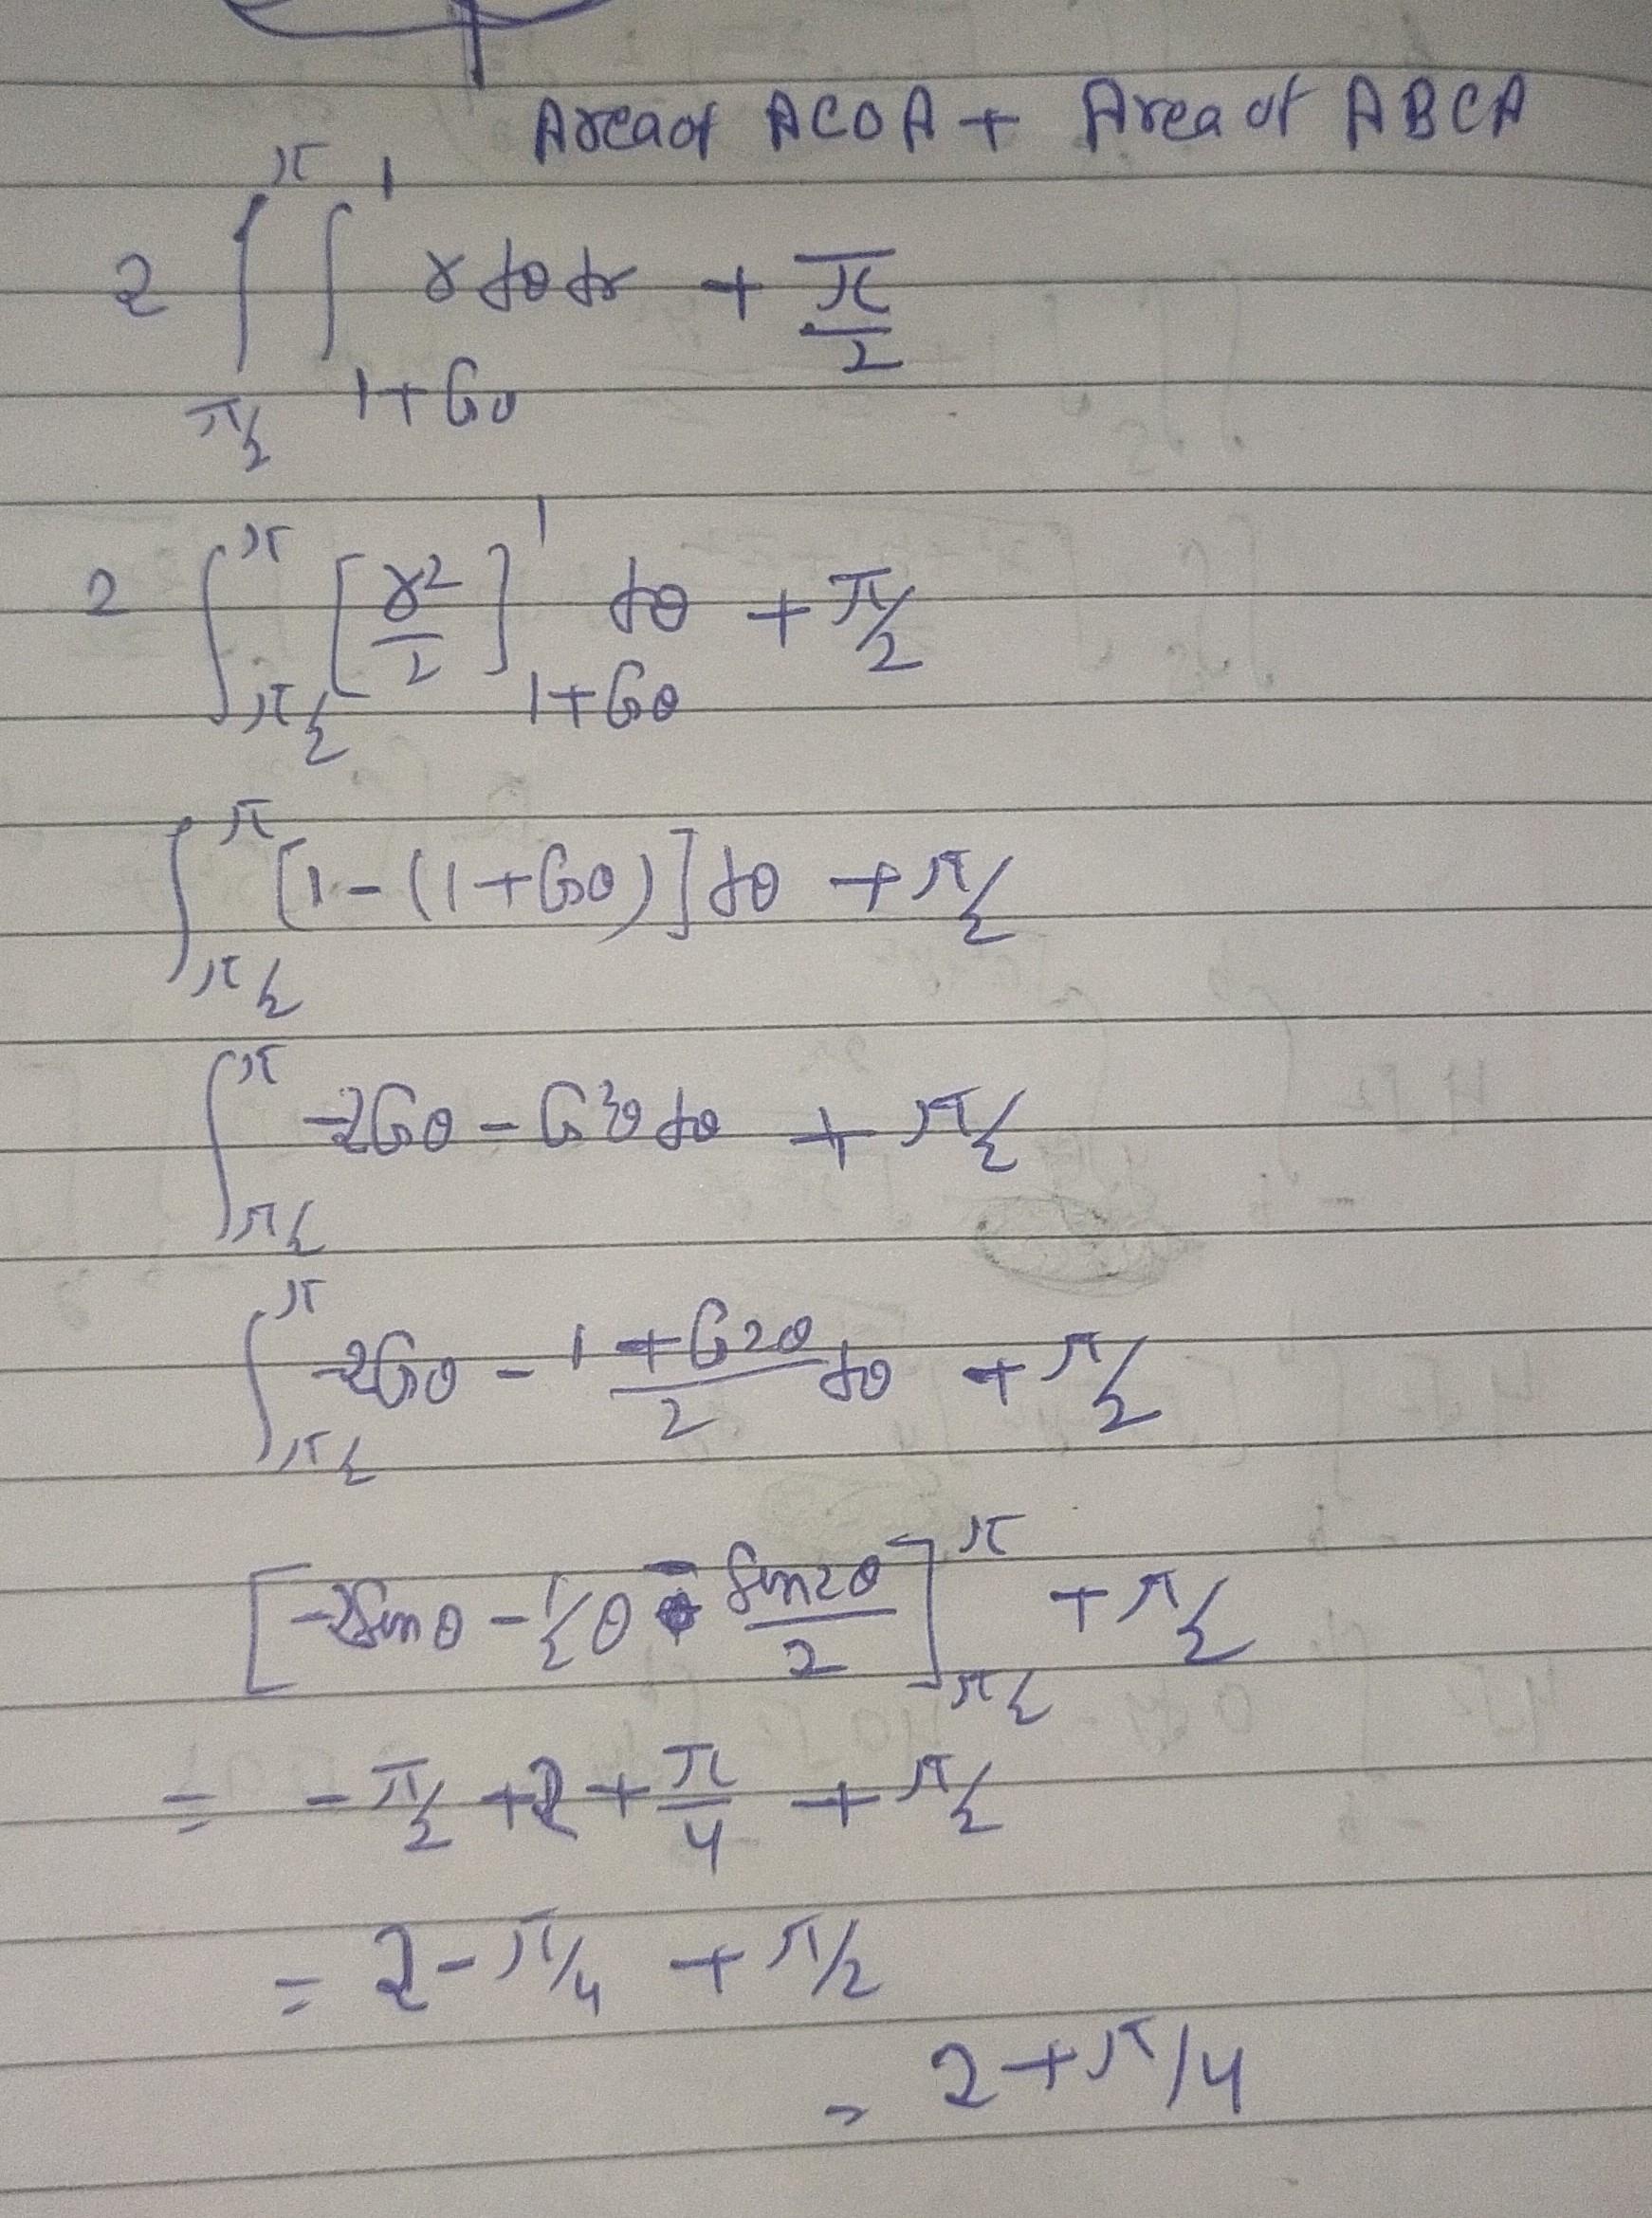 Area of ACOA + Area of ABCA
2 ∫_{π/2}^{π} ∫_{1+Cosθ}^{1} r dθ dr + π/2
2 ∫_{π/2}^{π} [r²/2]_{1+Cosθ}^{1} dθ + π/2
∫_{π/2}^{π} [1-(1+Cosθ)] dθ + π/2
∫_{π/2}^{π} -2Cosθ - Cos²θ dθ + π/2
∫_{π/2}^{π} -2Cosθ - (1+Cos2θ)/2 dθ + π/2
[-2Sinθ - 1/2 θ - Sin2θ/2]_{π/2}^{π} + π/2
= -π/2 + 2 + π/4 + π/2
= 2 - π/4 + π/2
= 2 + π/4